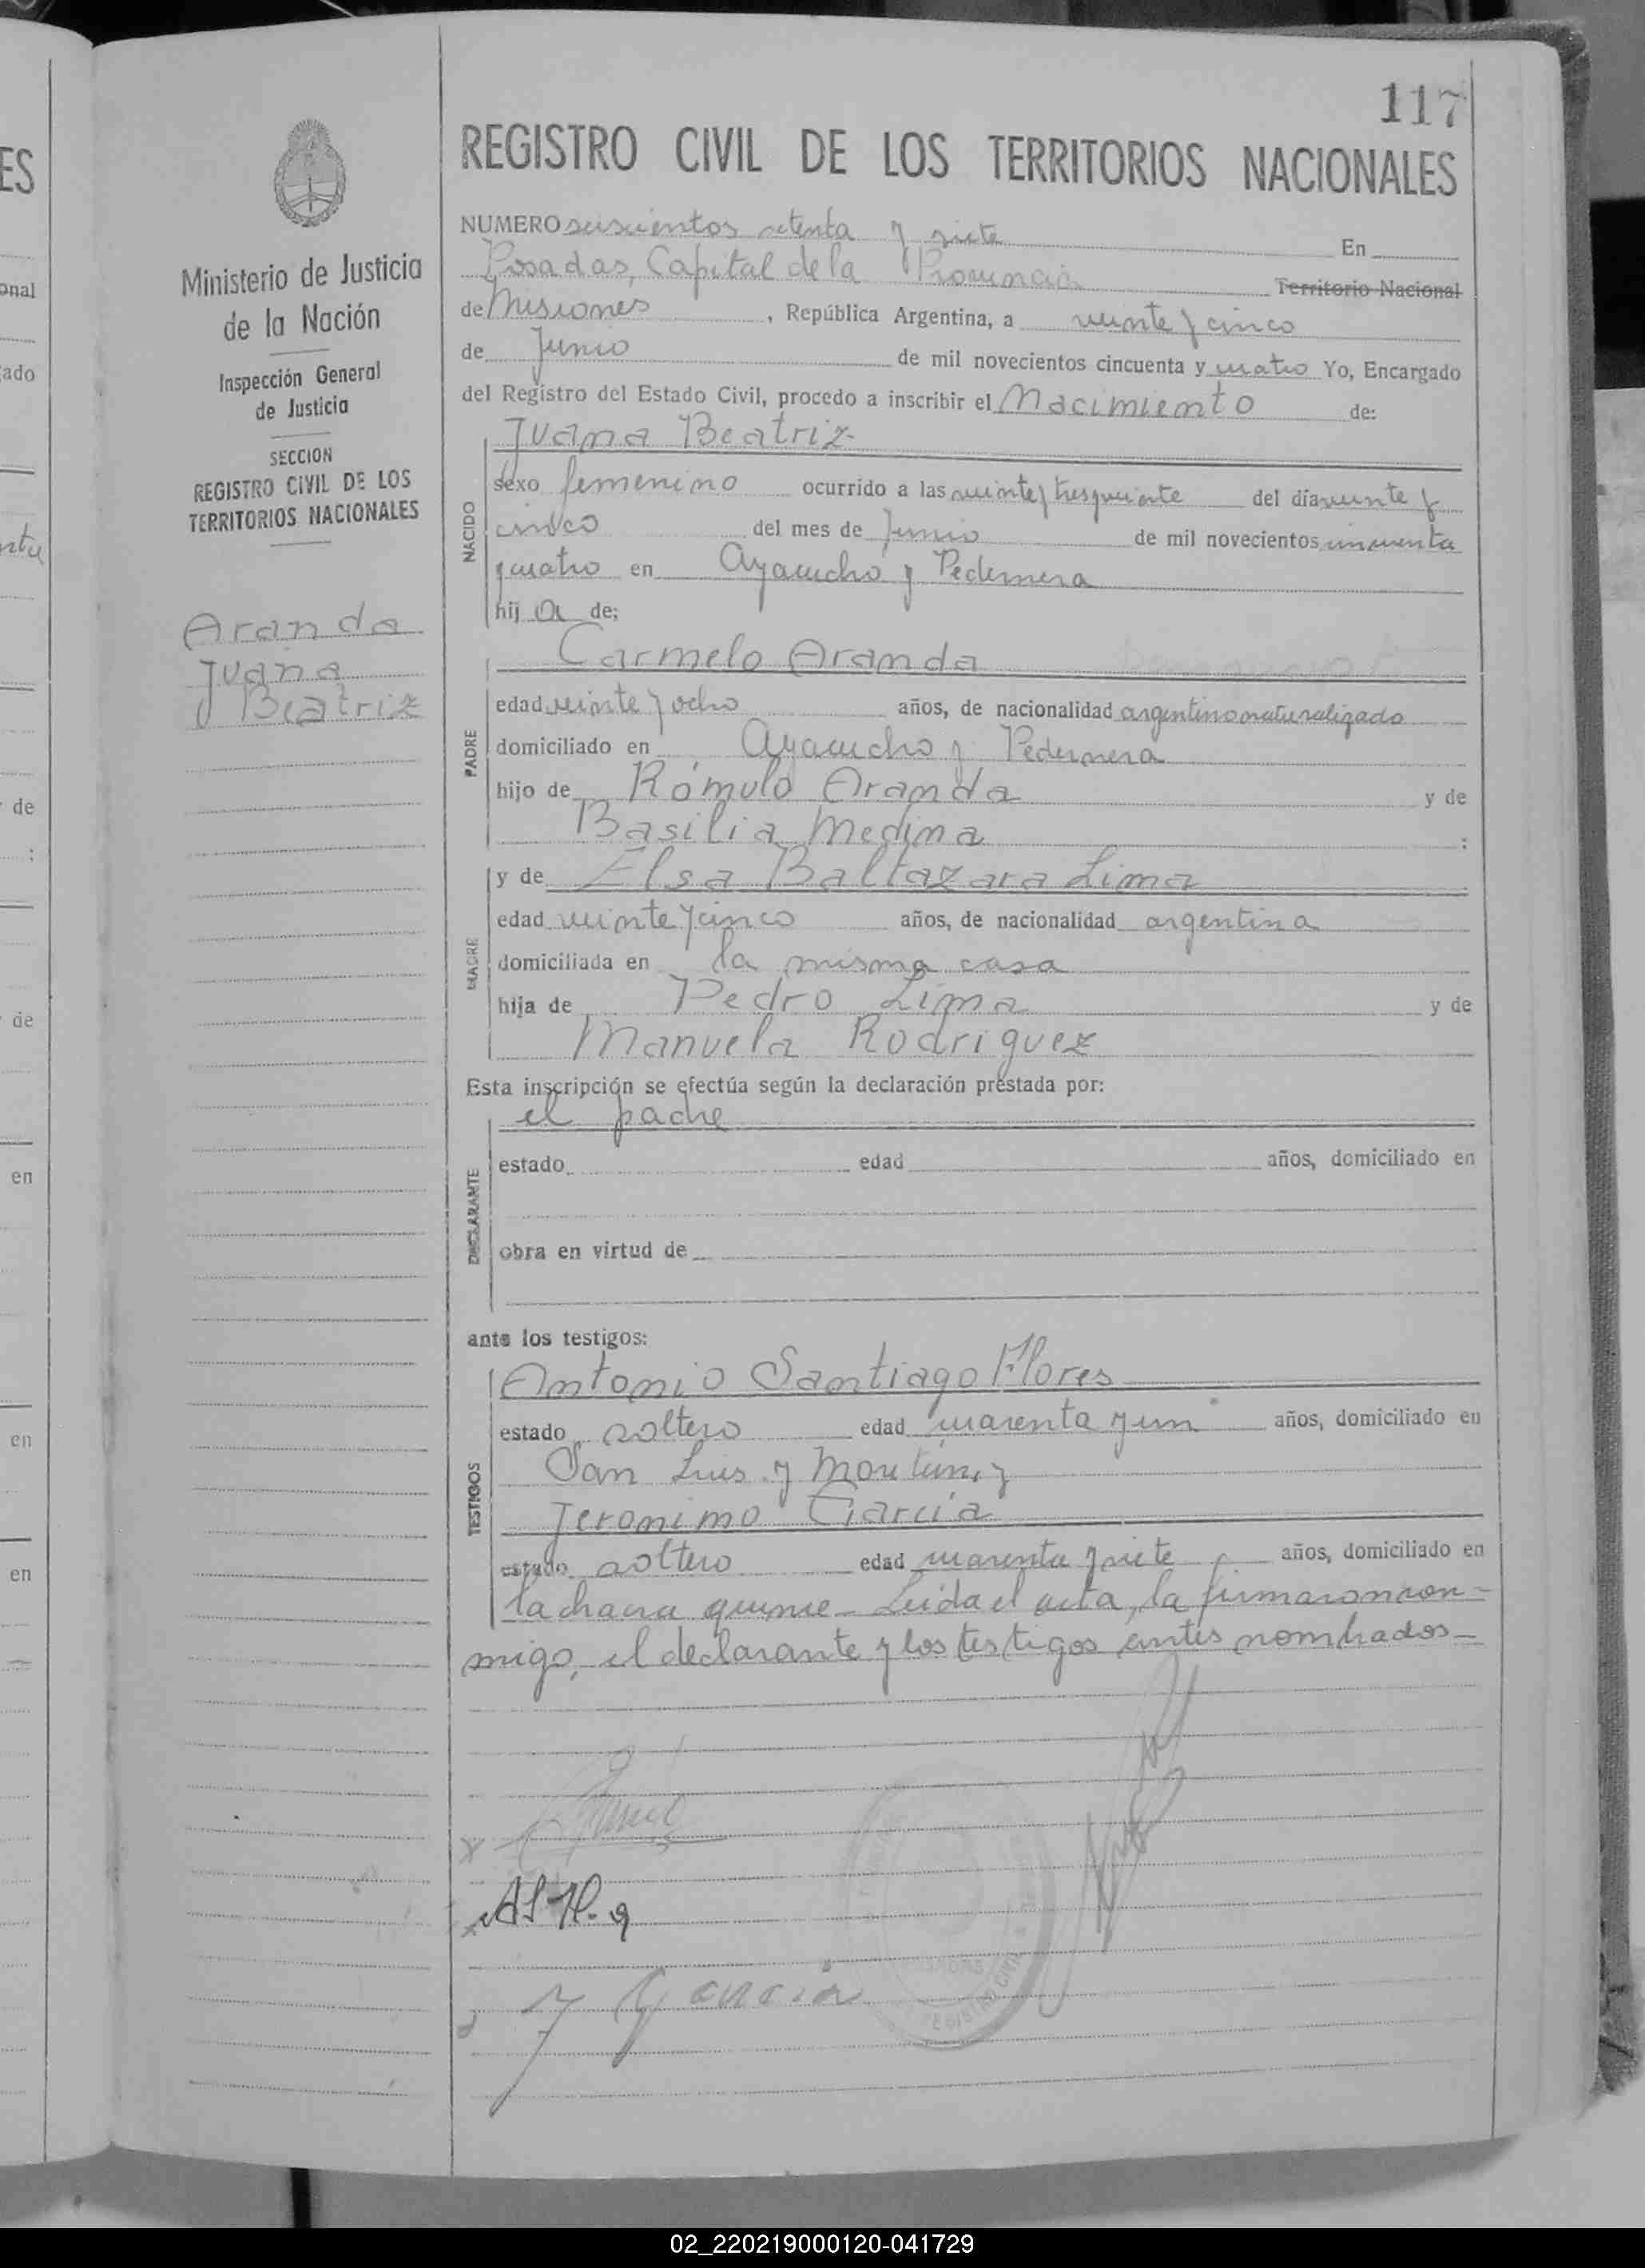 117
REGISTRO CIVIL DE LOS TERRITORIOS NACIONALES
Ministerio de Justicia
de la Nación
Inspección General
de Justicia
SECCION
REGISTRO CIVIL DE LOS
TERRITORIOS NACIONALES
Aranda
Juana
Beatriz
NUMERO seiscientos setenta y siete En
Posadas, Capital de la Provincia Territorio Nacional
de Misiones, República Argentina, a veinte y cinco
de Junio de mil novecientos cincuenta y cuatro Yo, Encargado
del Registro del Estado Civil, procedo a inscribir el Nacimiento de:
Juana Beatriz
NACIDO
sexo femenino ocurrido a las del día veinte y
cinco del mes de Junio de mil novecientos cincuenta
y cuatro en Ayacucho y Pedernera
hija de:
Carmelo Aranda
PADRE
edad veinte y ocho años, de nacionalidad argentino naturalizado
domiciliado en Ayacucho y Pedernera
hijo de Rómulo Aranda y de
Basilia Medina :
y de Elsa Baltazara Lima
MADRE
edad veinte y cinco años, de nacionalidad argentina
domiciliada en la misma casa
hija de Pedro Lima y de
Manuela Rodriguez
Esta inscripción se efectúa según la declaración prestada por:
el padre
DECLARANTE
estado edad años, domiciliado en
obra en virtud de
ante los testigos:
Antonio Santiago Flores
TESTIGOS
estado soltero edad cuarenta y un años, domiciliado en
San Luis y
Jeronimo Garcia
estado soltero edad cuarenta y siete años, domiciliado en
la chacra quince - Leida el acta, la firmaron con-
migo, el declarante y los testigos antes nombrados -
J Garcia
REGISTRO CIVIL
ES
onal
ado
de
:
de
en
en
en
02_220219000120-041729